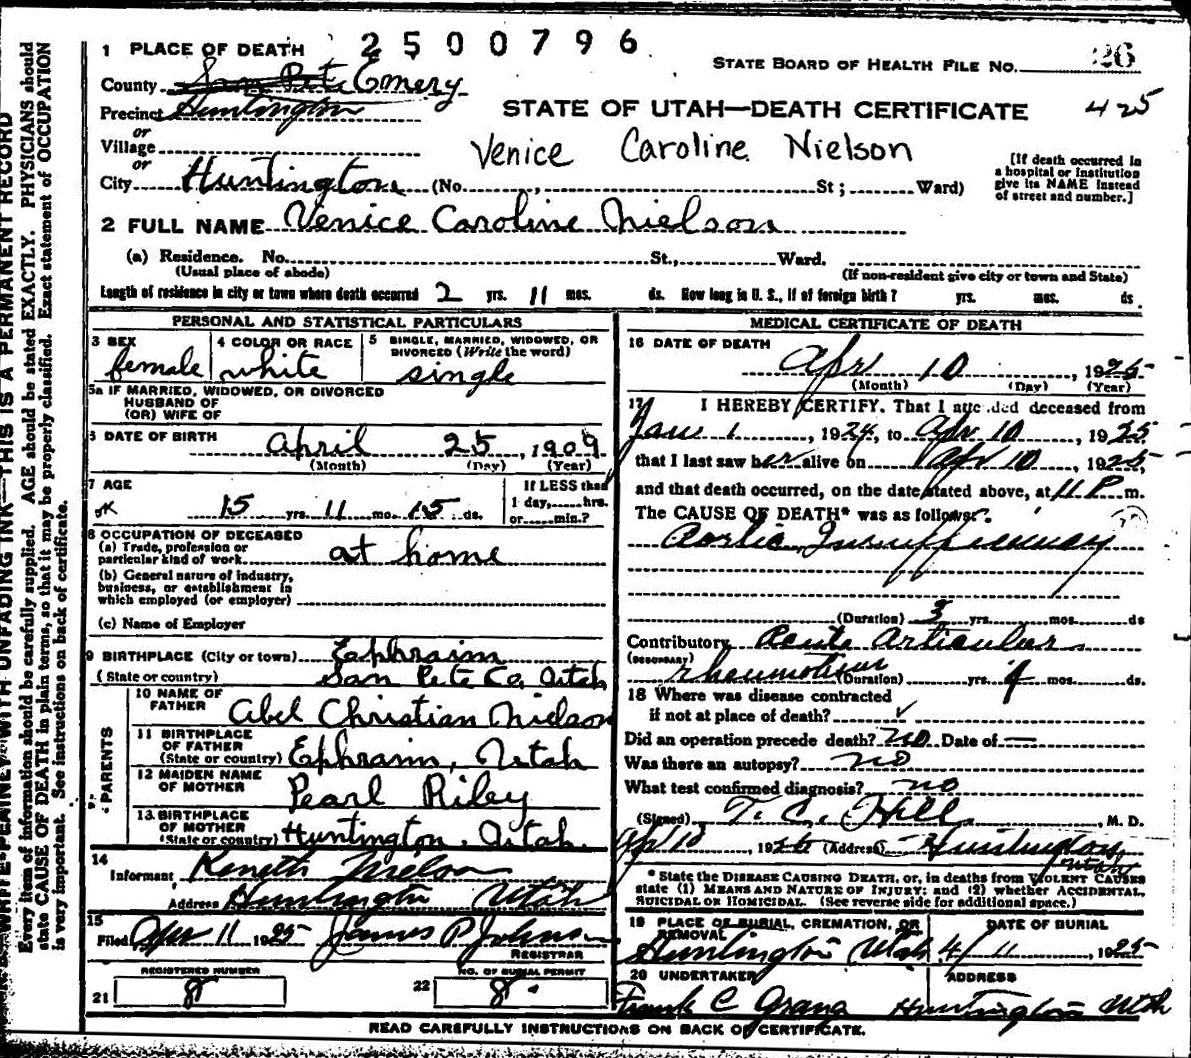 WRITE PLAINLY WITH UNFADING INK—THIS IS A PERMANENT RECORD
Every item of information should be carefully supplied. AGE should be stated EXACTLY. PHYSICIANS should
state CAUSE OF DEATH in plain terms, so that it may be properly classified. Exact statement of OCCUPATION
is very important. See instructions on back of certificate.
1 PLACE OF DEATH 2500796
STATE BOARD OF HEALTH FILE NO. 26
County San Pete Emery
Precinct Huntington
STATE OF UTAH—DEATH CERTIFICATE 425
or
Village
Venice Caroline Nielson
[If death occurred in
a hospital or institution
give its NAME instead
of street and number.]
or
City Huntington (No. , St; Ward)
2 FULL NAME Venice Caroline Nielson
(a) Residence. No. St., Ward.
(Usual place of abode) (If non-resident give city or town and State)
Length of residence in city or town where death occurred 2 yrs. 11 mos. ds. How long in U. S., if of foreign birth? yrs. mos. ds.
PERSONAL AND STATISTICAL PARTICULARS
3 SEX female
4 COLOR OR RACE white
5 SINGLE, MARRIED, WIDOWED, OR
DIVORCED (Write the word)
single
5a IF MARRIED, WIDOWED, OR DIVORCED
HUSBAND OF
(OR) WIFE OF
6 DATE OF BIRTH April 25, 1909
(Month) (Day) (Year)
7 AGE
15 yrs. 11 mo. 15 ds.
If LESS than
1 day, hrs.
or min.?
8 OCCUPATION OF DECEASED
(a) Trade, profession or
particular kind of work at home
(b) General nature of industry,
business, or establishment in
which employed (or employer)
(c) Name of Employer
9 BIRTHPLACE (City or town) Ephraim
(State or country) San Pete Co, Utah
PARENTS
10 NAME OF
FATHER Abel Christian Nielson
11 BIRTHPLACE
OF FATHER
(State or country) Ephraim, Utah
12 MAIDEN NAME
OF MOTHER Pearl Riley
13 BIRTHPLACE
OF MOTHER
(State or country) Huntington, Utah.
14
Informant Keneth Nielson
Address Huntington Utah
15
Filed Apr 11 1925 James P Johnson
REGISTRAR
REGISTERED NUMBER
21 8
NO. OF BURIAL PERMIT
22 8
MEDICAL CERTIFICATE OF DEATH
16 DATE OF DEATH
Apr 10, 1925
(Month) (Day) (Year)
17 I HEREBY CERTIFY, That I attended deceased from
Jan 1, 1924, to Apr 10, 1925
that I last saw her alive on Apr 10, 1925,
and that death occurred, on the date stated above, at 11 P m.
The CAUSE OF DEATH* was as follows:
Aortic Insufficiency
(Duration) 3 yrs. mos. ds
Contributory Acute Articular
(SECONDARY) rheumatism (Duration) yrs. mos. ds.
18 Where was disease contracted
if not at place of death?
Did an operation precede death? no Date of —
Was there an autopsy? no
What test confirmed diagnosis? no
(Signed) T. C. Hill, M. D.
Apr 10, 1925 (Address) Huntington
Utah
* State the DISEASE CAUSING DEATH, or, in deaths from VIOLENT CAUSES
state (1) MEANS AND NATURE OF INJURY; and (2) whether ACCIDENTAL,
SUICIDAL OR HOMICIDAL. (See reverse side for additional space.)
19 PLACE OF BURIAL, CREMATION, OR
REMOVAL
Huntington Utah
DATE OF BURIAL
4/11, 1925
20 UNDERTAKER
Frank C Grang
ADDRESS
Huntington Utah
READ CAREFULLY INSTRUCTIONS ON BACK OF CERTIFICATE.